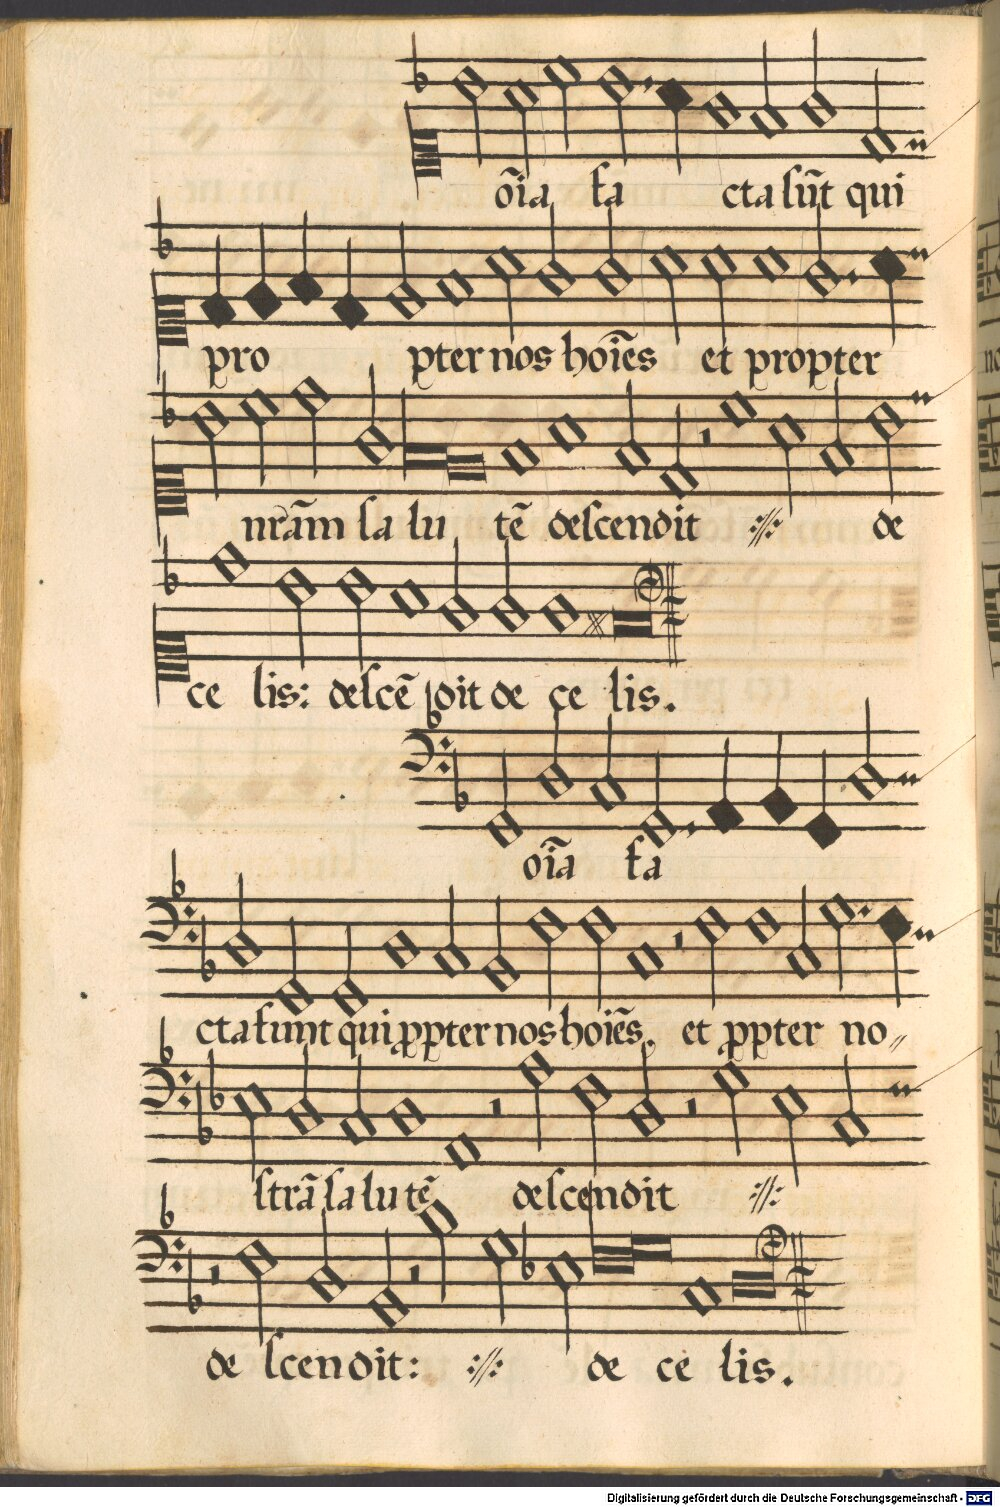 oīa fa cta sūt qui
pro pter nos hoīes et propter
nrām sa lu tē descendit ://: de
ce lis: descē dit de ce lis.
oīa fa
cta sunt qui ꝓpter nos hoīes, et ꝓpter no,,
strā sa lu tē descendit :://:
de scen dit: :://: de ce lis.
Digitalisierung gefördert durch die Deutsche Forschungsgemeinschaft - DFG